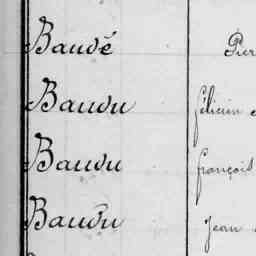 Baudé Pier
Baudu félicien
Baudu françois
Baudu Jean